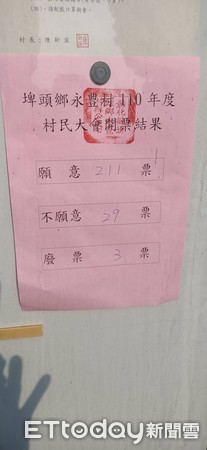 村長：陳
埤頭鄉永豐村110年度
村民大會開票結果
願意 211 票
不願意 29 票
廢票 3 票
ETtoday新聞雲